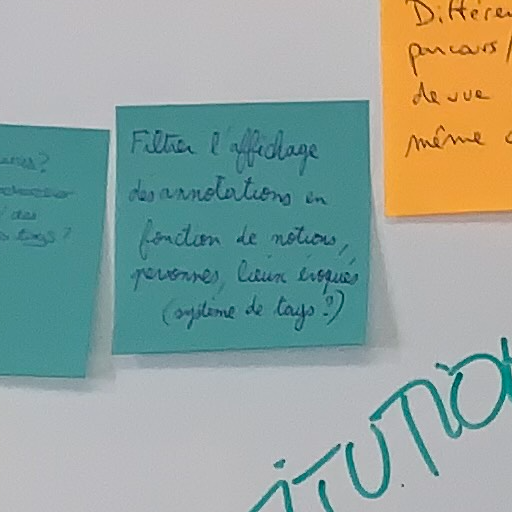 Filtrer l'affichage
des annotations en
fonction de notions,
personnes, lieux évoqués
(système de tags ?)
Différen
parcours/
de vue
même
des
tags ?
ITUTIO